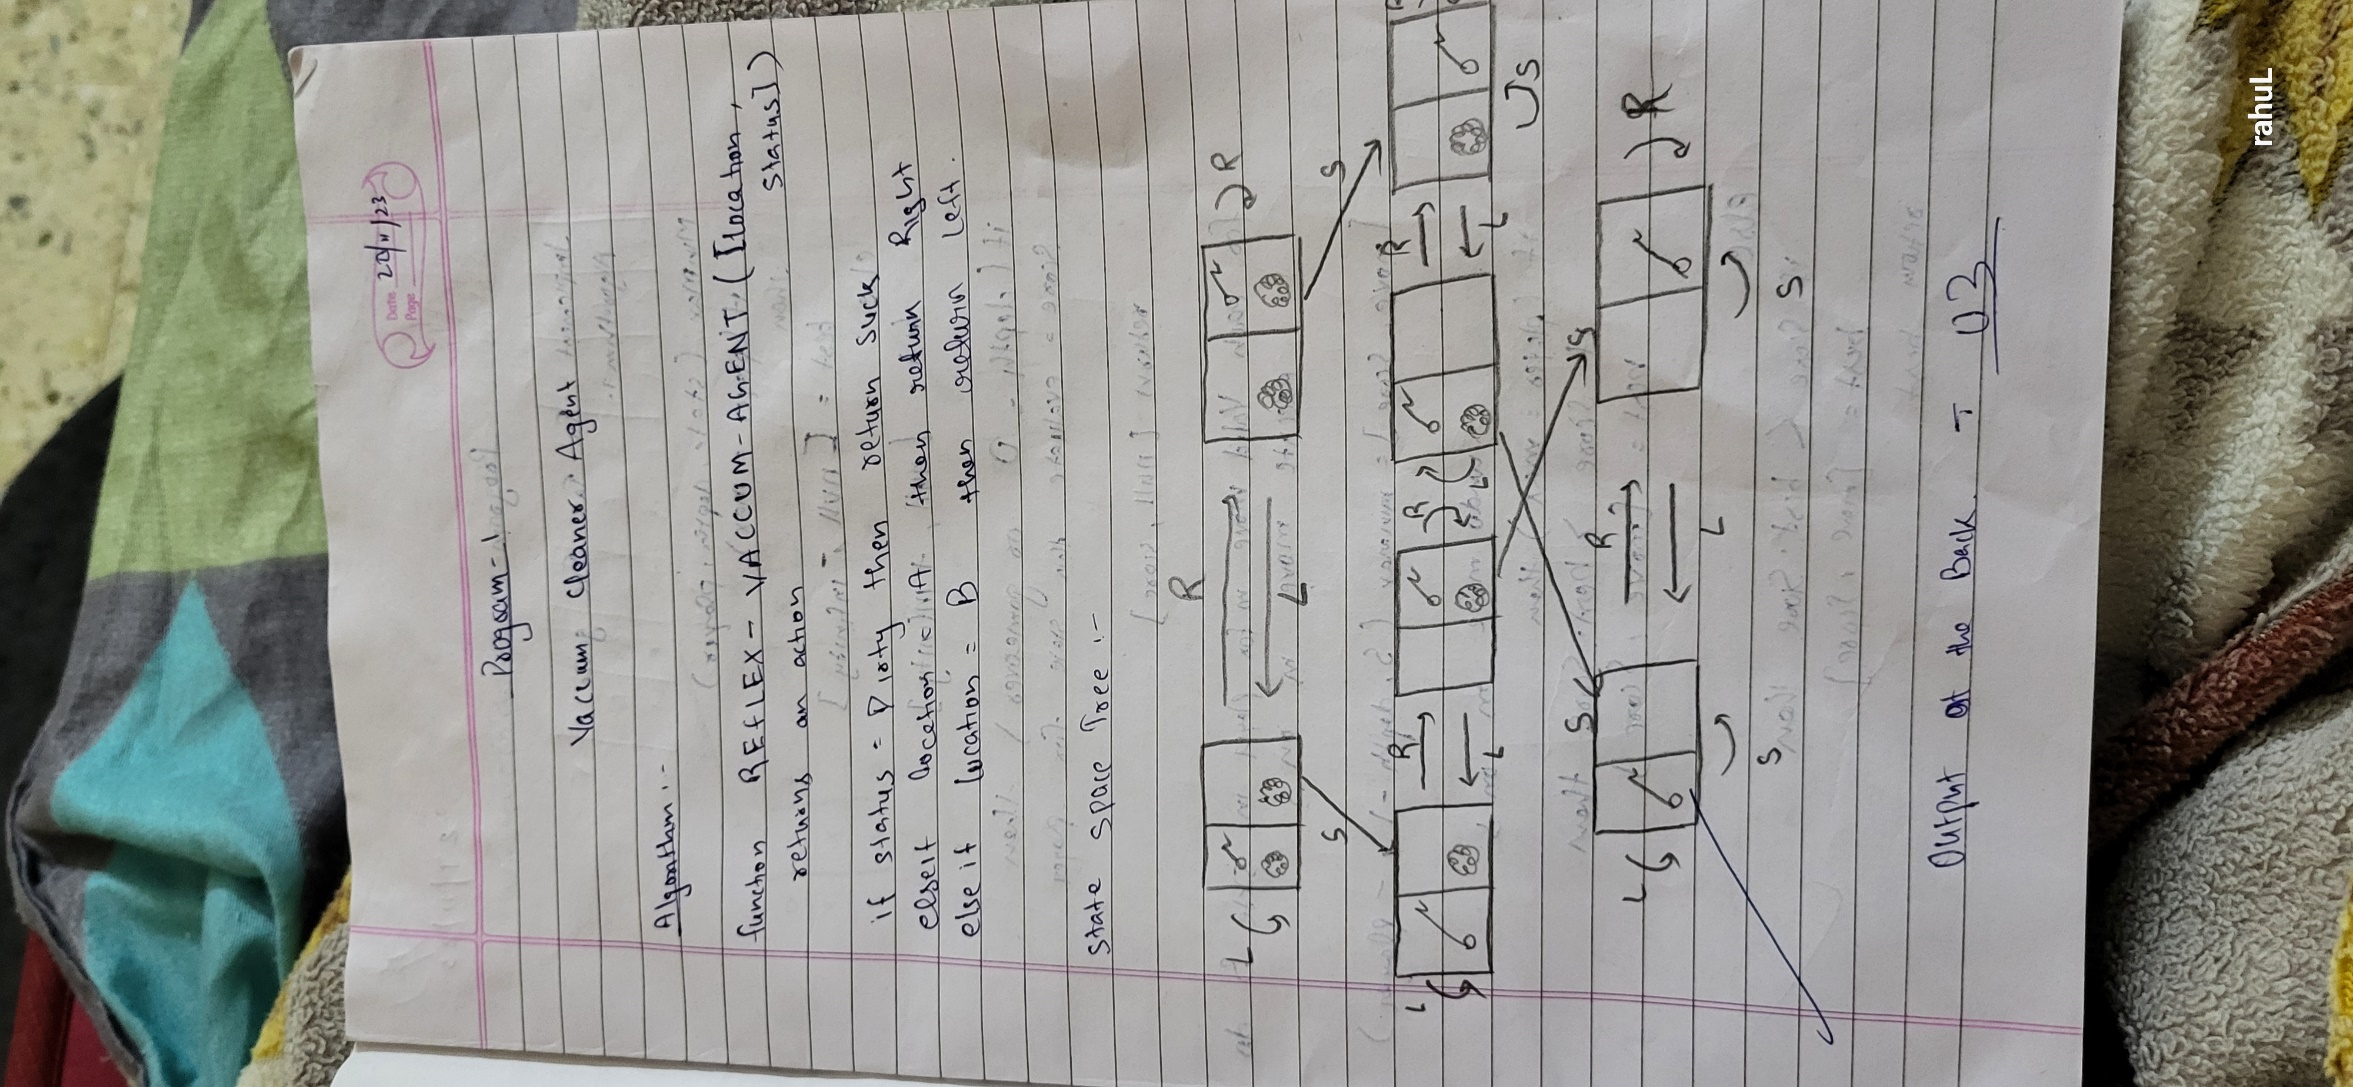 Date 20/11/23
Page
Program-1
Vaccum Cleaner Agent
Algorithm :-
function REFLEX - VACCUM - AGENT ([location,
status])
returns an action
if status = Dirty then return Suck
elseif location = A then return Right
else if location = B then return left.
State space Tree :-
R
L
R
L
S
S
R
L
R
L
R
L
L
S
S
S
R
L
L
R
S
S
Output at the Back - 03
rahuL